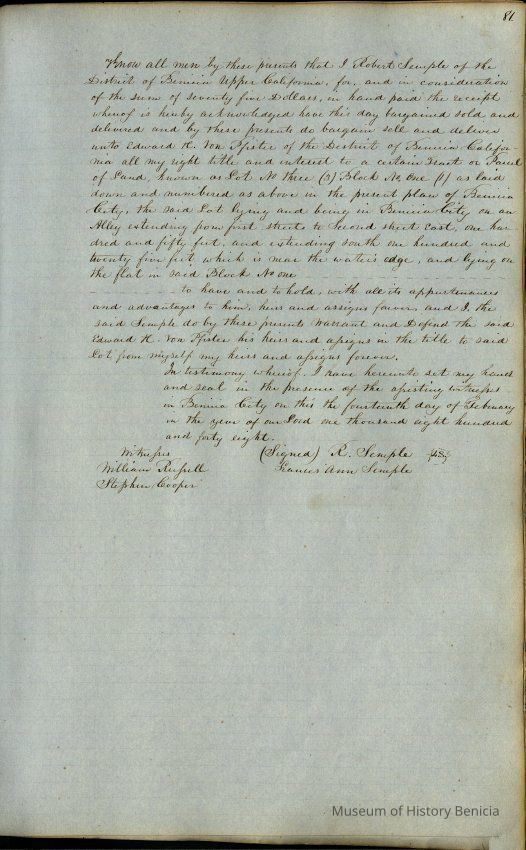 81
Know all men by these presents that I Robert Semple of the
District of Benicia Upper California, for, and in consideration
of the sum of seventy five Dollars, in hand paid the receipt
whereof is hereby acknowledged have this day bargained sold and
delivered and by these presents do bargain sell and deliver
unto Edward H. Von Pfister of the District of Benicia Califor-
nia all my right title and interest to a certain Tract or Parcel
of Land, known as Lot No three (3) Block No. one (1) as laid
down and numbered as above in the present plan of Benicia
City, the said Lot lying and being in Benicia City on an
Alley extending from first street to Second street East, one hun
dred and fifty feet, and extending south one hundred and
twenty five feet, which is near the water's edge, and lying on
the flat in said Block No one
to have and to hold, with all its appurtenances
and advantages to him, heirs and assigns forever, and I, the
said Semple do by these presents Warrant and Defend the said
Edward H. Von Pfister his heirs and assigns in the title to said
Lot from myself my heirs and assigns forever.
In testimony whereof, I have hereunto set my hand
and seal in the presence of the assisting witnesses
in Benicia City on this the fourteenth day of February
in the year of our Lord one thousand eight hundred
and forty eight.
Witnesses (Signed) R. Semple
William Russell Frances Ann Semple
Stephen Cooper
Museum of History Benicia